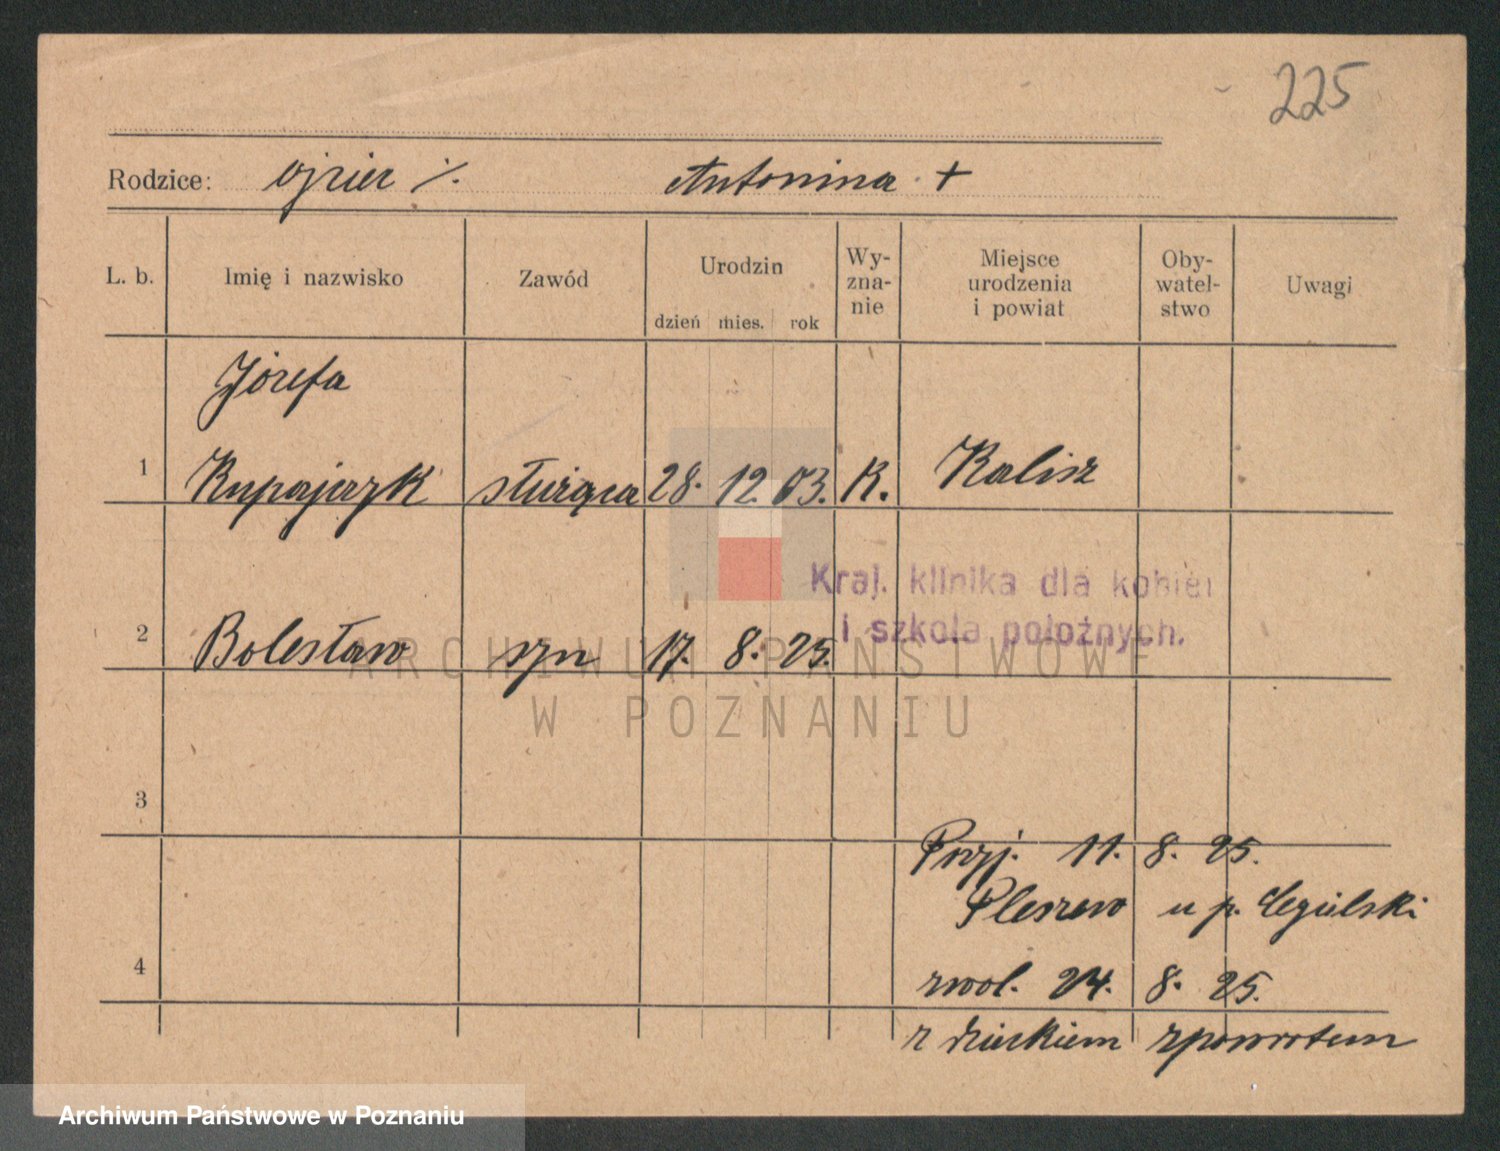 225
Rodzice: ojciec ·/. Antonina +
L. b. Imię i nazwisko Zawód Urodzin dzień mies. rok Wy-zna-nie Miejsce urodzenia i powiat Oby-watel-stwo Uwagi
Józefa
1 służąca 28. 12. 03. K. Kalisz
Kraj. klinika dla kobiet
i szkoła położnych.
2 Bolesław syn 17. 8. 25.
ARCHIWUM PAŃSTWOWE
W POZNANIU
3
Przyj. 11. 8. 25.
Pleszew u p. Cegielski
4 zwol. 24. 8. 25.
z dzieckiem zpowrotem
Archiwum Państwowe w Poznaniu